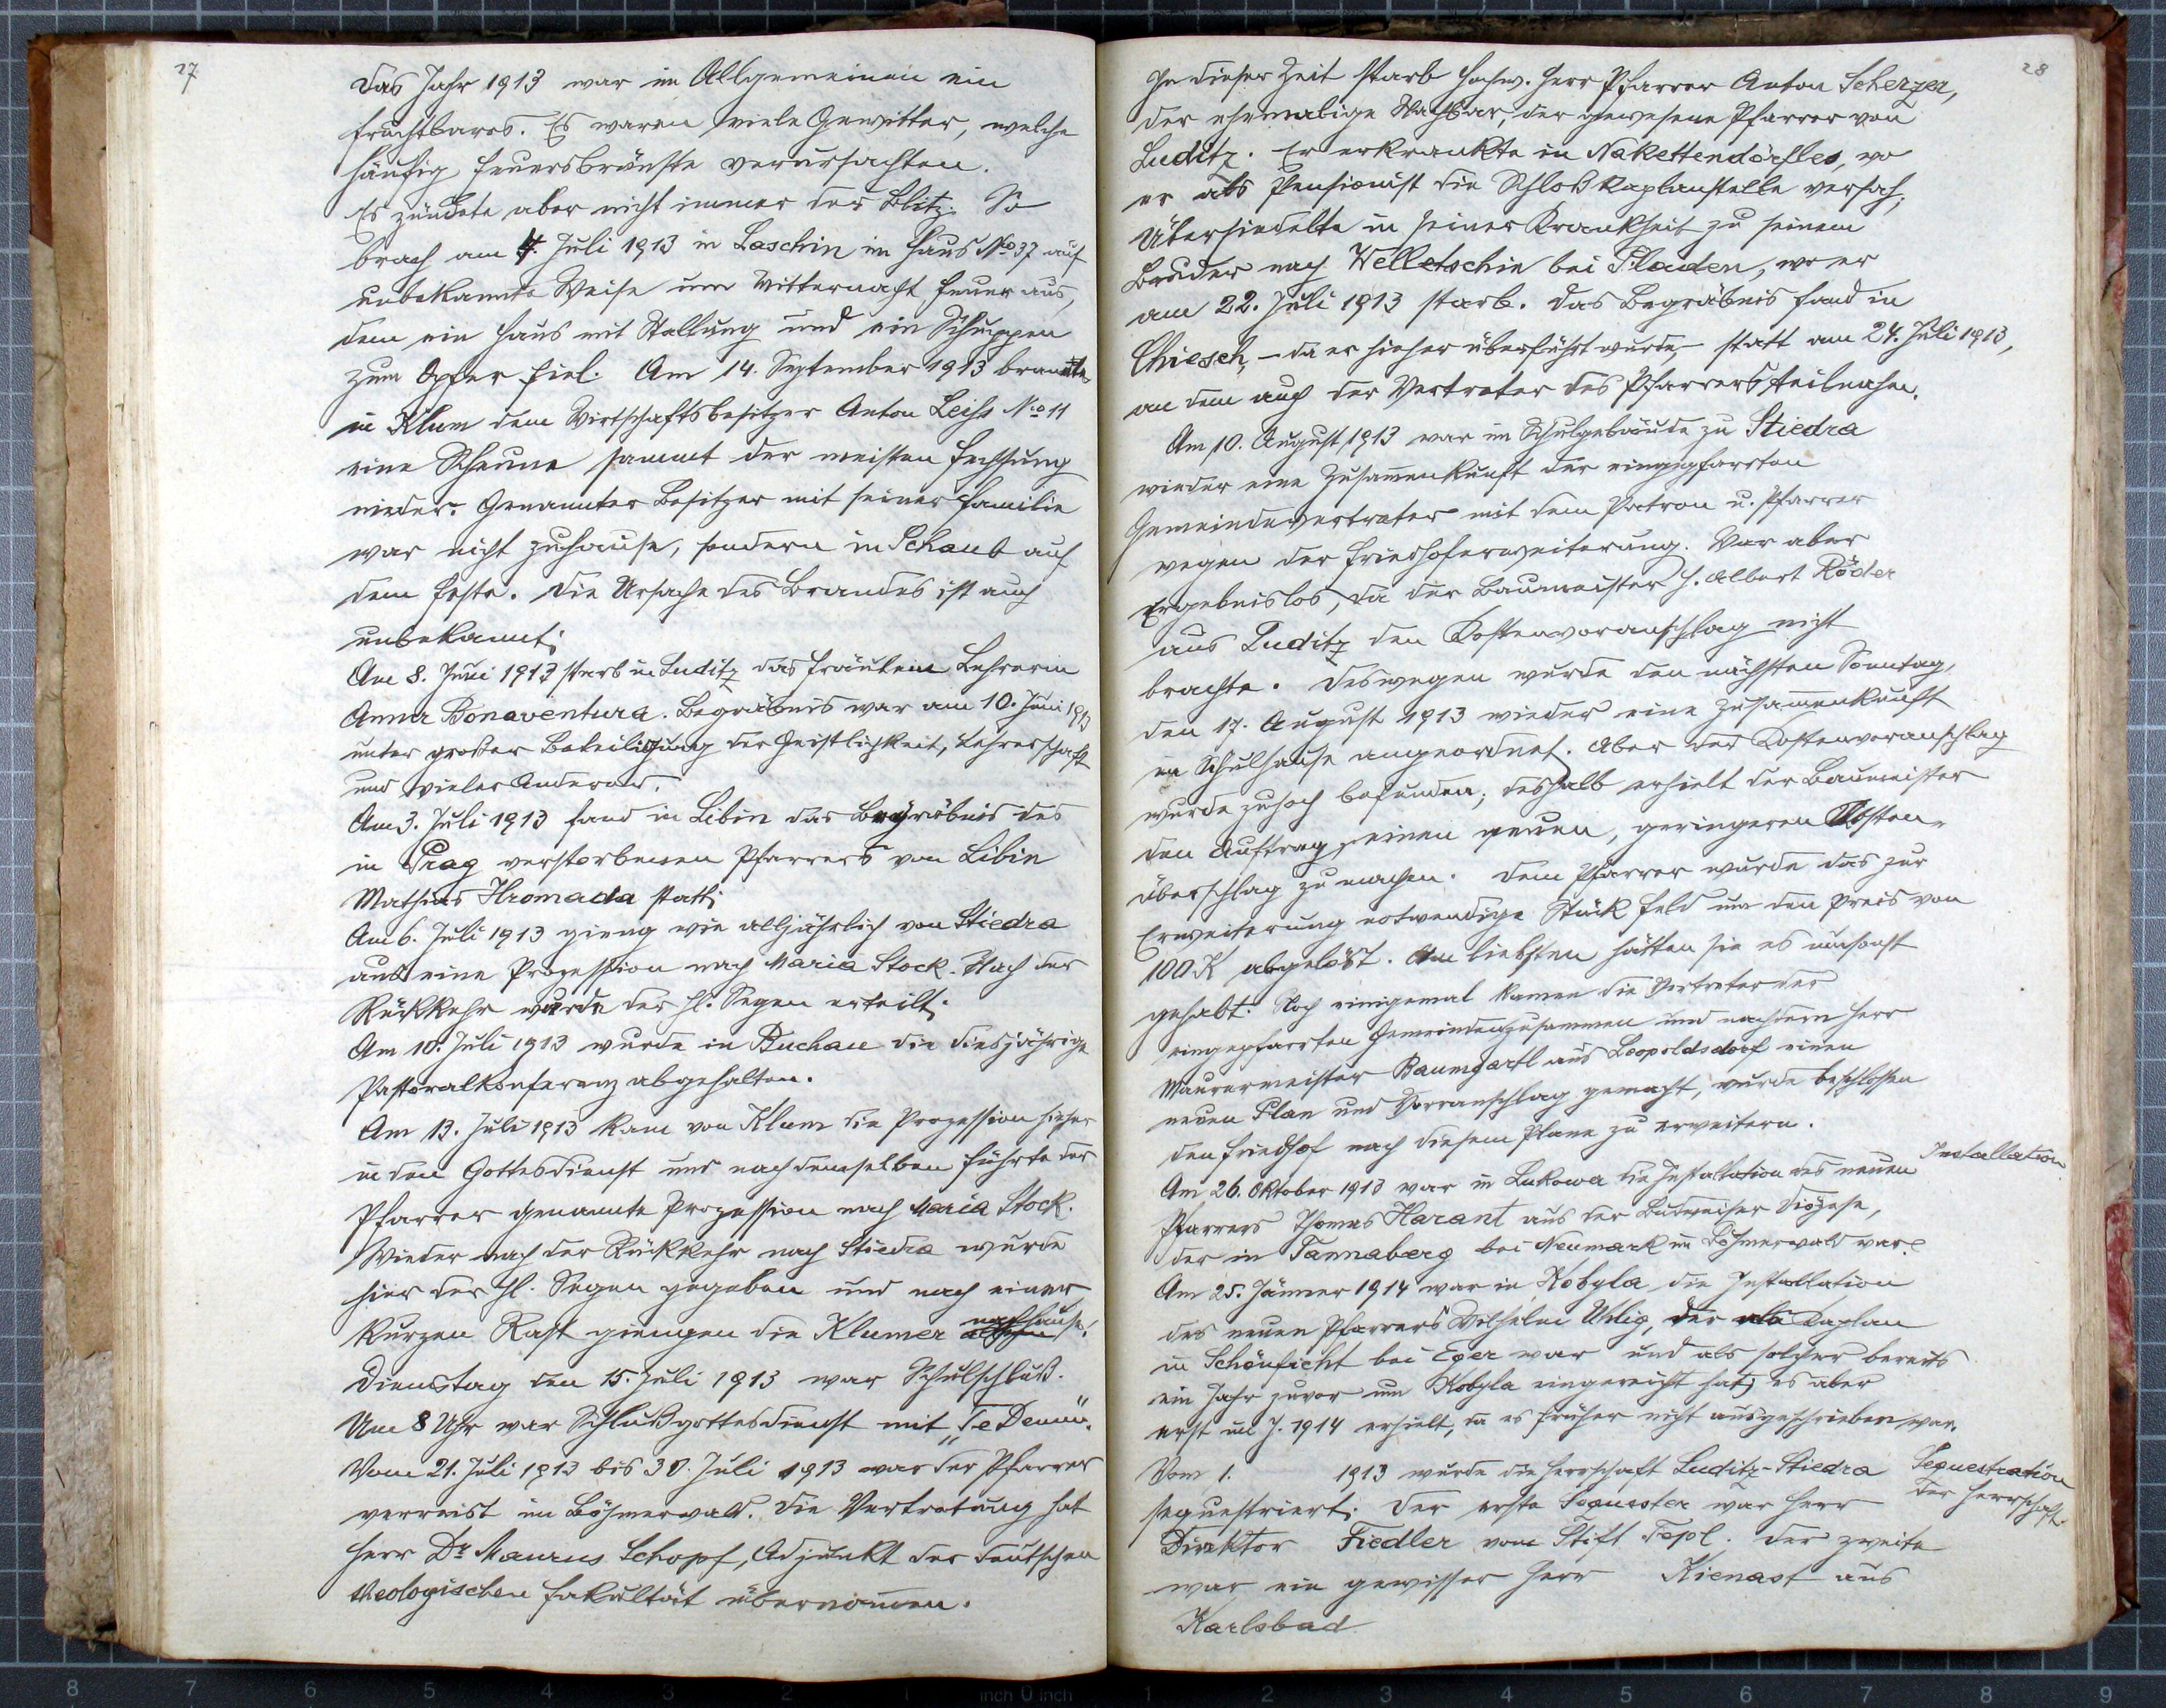 27
Das Jahr 1913 war im Allgemeinen ein
fruchtbares. Es waren viele Gewitter, welche
häufig Feuersbrünste verursachten.
Es zündete aber nicht immer der Blitz. So
brach am 4. Juli 1913 in Laschin im Haus No 37 auf
unbekannte Weise um Mitternacht Feuer aus,
dem ein Haus mit Stallung und ein Schuppen
zum Opfer fiel. Am 14. September 1913 brannte
in Klum dem Wirtschaftsbesitzer Anton Leiss No 11
eine Scheune sammt der meisten Fechsung
nieder. Genannter Besitzer mit seiner Familie
war nicht zuhause, sondern in Schaub auf
dem Feste. Die Ursache des Brandes ist auch
unbekannt.
Am 8. Juni 1913 starb in Luditz das Fräulein Lehrerin
Anna Bonaventura. Begräbnis war am 10. Juni 1913
unter großer Beteiligung der Geistlichkeit, Lehrerschaft
und vieler Anderer.
Am 3. Juli 1913 fand in Libin das Begräbnis des
in Prag verstorbenen Pfarrers von Libin
Mathias Hromada statt.
Am 6. Juli 1913 gieng wie alljährlich von Stiedra
aus eine Prozession nach Maria Stock. Nach der
Rückkehr wurde der hl. Segen erteilt.
Am 10. Juli 1913 wurde in Buchau die diesjährige
Pastoralkonferenz abgehalten.
Am 13. Juli 1913 kam von Klum die Prozession hieher
in den Gottesdienst und nach demselben führte der
Pfarrer genannte Prozession nach Maria Stock.
Wieder nach der Rückkehr nach Stiedra wurde
hier der hl. Segen gegeben und nach einer
kurzen Rast giengen die Klumer nachhause.
Dienstag den 15. Juli 1913 war Schulschluß.
Um 8 Uhr war Schlußgottesdienst mit „Te Deum“.
Vom 21. Juli 1913 bis 30. Juli 1913 war der Pfarrer
verreist im Böhmerwald. Die Vertretung hat
Herr Dr Maurus Schopf, Adjunkt der deutschen
theologischen Fakultät übernommen.
28
In dieser Zeit starb hochw. Herr Pfarrer Anton Scherzer,
der ehemalige Nachbar, der gewesene Pfarrer von
Luditz. Er erkrankte in Nakettendörfles, wo
er als Pensionist die Schloßkaplanstelle versah;
Übersiedelte in seiner Krankheit zu seinem
Bruder nach Welletschin bei Pladen, wo er
am 22. Juli 1913 starb. Das Begräbnis fand in
Chiesch, – da er hieher überführt wurde, statt am 24. Juli 1913,
an dem auch der Vertreter des Pfarrers teilnahm.
Am 10. August 1913 war im Schulgebäude zu Stiedra
wieder eine Zusammenkunft der eingepfarrten
Gemeindevertreter mit dem Patron u. Pfarrer
wegen der Friedhoferweiterung. War aber
Ergebnislos, da der Baumeister H. Albert Röder
aus Luditz den Kostenvoranschlag nicht
brachte. Deswegen wurde den nächsten Sonntag,
den 17. August 1913 wieder eine Zusammenkunft
im Schulhause angeordnet. Aber der Kostenvoranschlag
wurde zuhoch befunden; deshalb erhielt der Baumeister
den Auftrag, einen neuen, geringeren Kosten-
überschlag zu machen. Dem Pfarrer wurde das zur
Erweiterung notwendige Stück Feld um den Preis von
100 K abgelöst. Am liebsten hätten sie es umsonst
gehabt. Noch einigemal kamen die Vertreter der
eingepfarrten Gemeinden zusammen und nachdem Herr
Maurermeister Baumgartl aus Leopoldsdorf einen
neuen Plan und Voranschlag gemacht, wurde beschlossen
den Friedhof nach diesem Plane zu erweitern.
Installation
Am 26. Oktober 1913 war in Lukowa die Installation des neuen
Pfarrers Thomas Harant aus der Budweiser Diözese,
der in Tannaberg bei Neumark im Böhmerwald war.
Am 25. Jänner 1914 war in Kobyla die Installation
des neuen Pfarrers Wilhelm Uhlig, der als Kaplan
in Schönficht bei Eger war und als solcher bereits
ein Jahr zuvor um Kobyla eingereicht hat, es aber
erst im J. 1914 erhielt, da es früher nicht ausgeschrieben war.
Sequestration
der Herrschaft.
Vom 1. 1913 wurde die Herrschaft Luditz-Stiedra
sequestriert. Der erste Sequester war Herr
Direktor Fiedler vom Stift Tepl. Der zweite
war ein gewisser Herr Kienast aus
Karlsbad
8 7 6 5 4 3 2 1 inch 0 inch 1 2 3 4 5 6 7 8 9